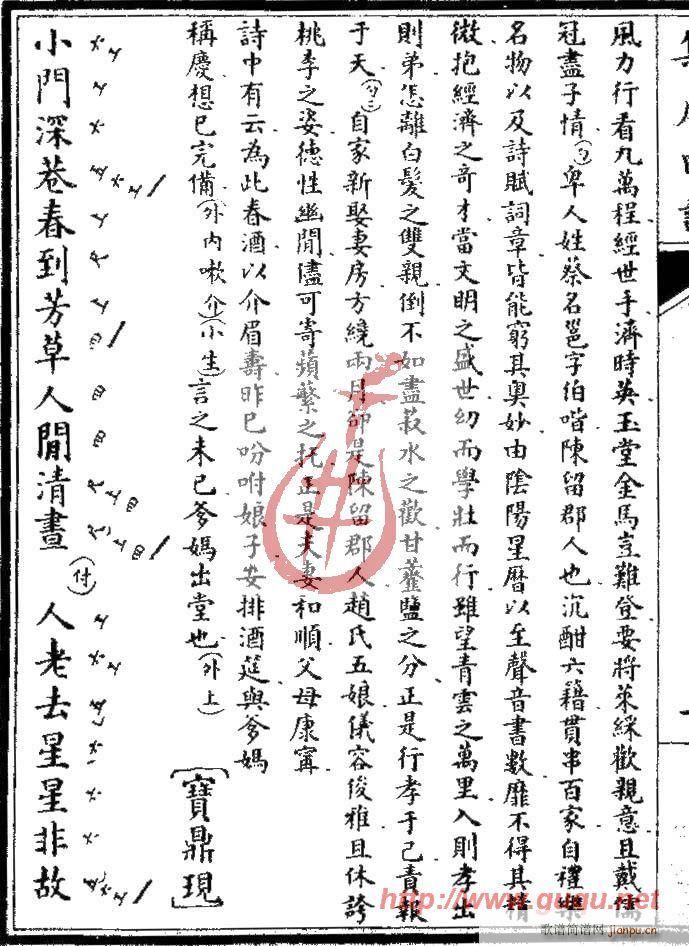 風力行看九萬程經世手濟時英玉堂金馬豈難登要將萊綵歡親意且戴儒
冠盡子情(白)卑人姓蔡名邕字伯喈陳留郡人也沉酣六籍貫串百家自禮樂
名物以及詩賦詞章皆能窮其奧妙由陰陽星曆以至聲音書數靡不得其精
微抱經濟之奇才當文明之盛世幼而學壯而行雖望青雲之萬里入則孝出
則弟怎離白髮之雙親倒不如盡菽水之歡甘虀鹽之分正是行孝于己責報
于天(白三)自家新娶妻房方纔兩月卻是陳留郡人趙氏五娘儀容俊雅且休誇
桃李之姿德性幽閒儘可寄蘋蘩之托正是夫妻和順父母康寗
詩中有云為此春酒以介眉壽昨已吩咐娘子安排酒筵與爹媽
稱慶想已完備(外內嗽介)(小生)言之未已爹媽出堂也(外上)
[寶鼎現]
小門深巷春到芳草人閒清晝(付)人老去星星非故
http://www.gugu.net
歌谱简谱网